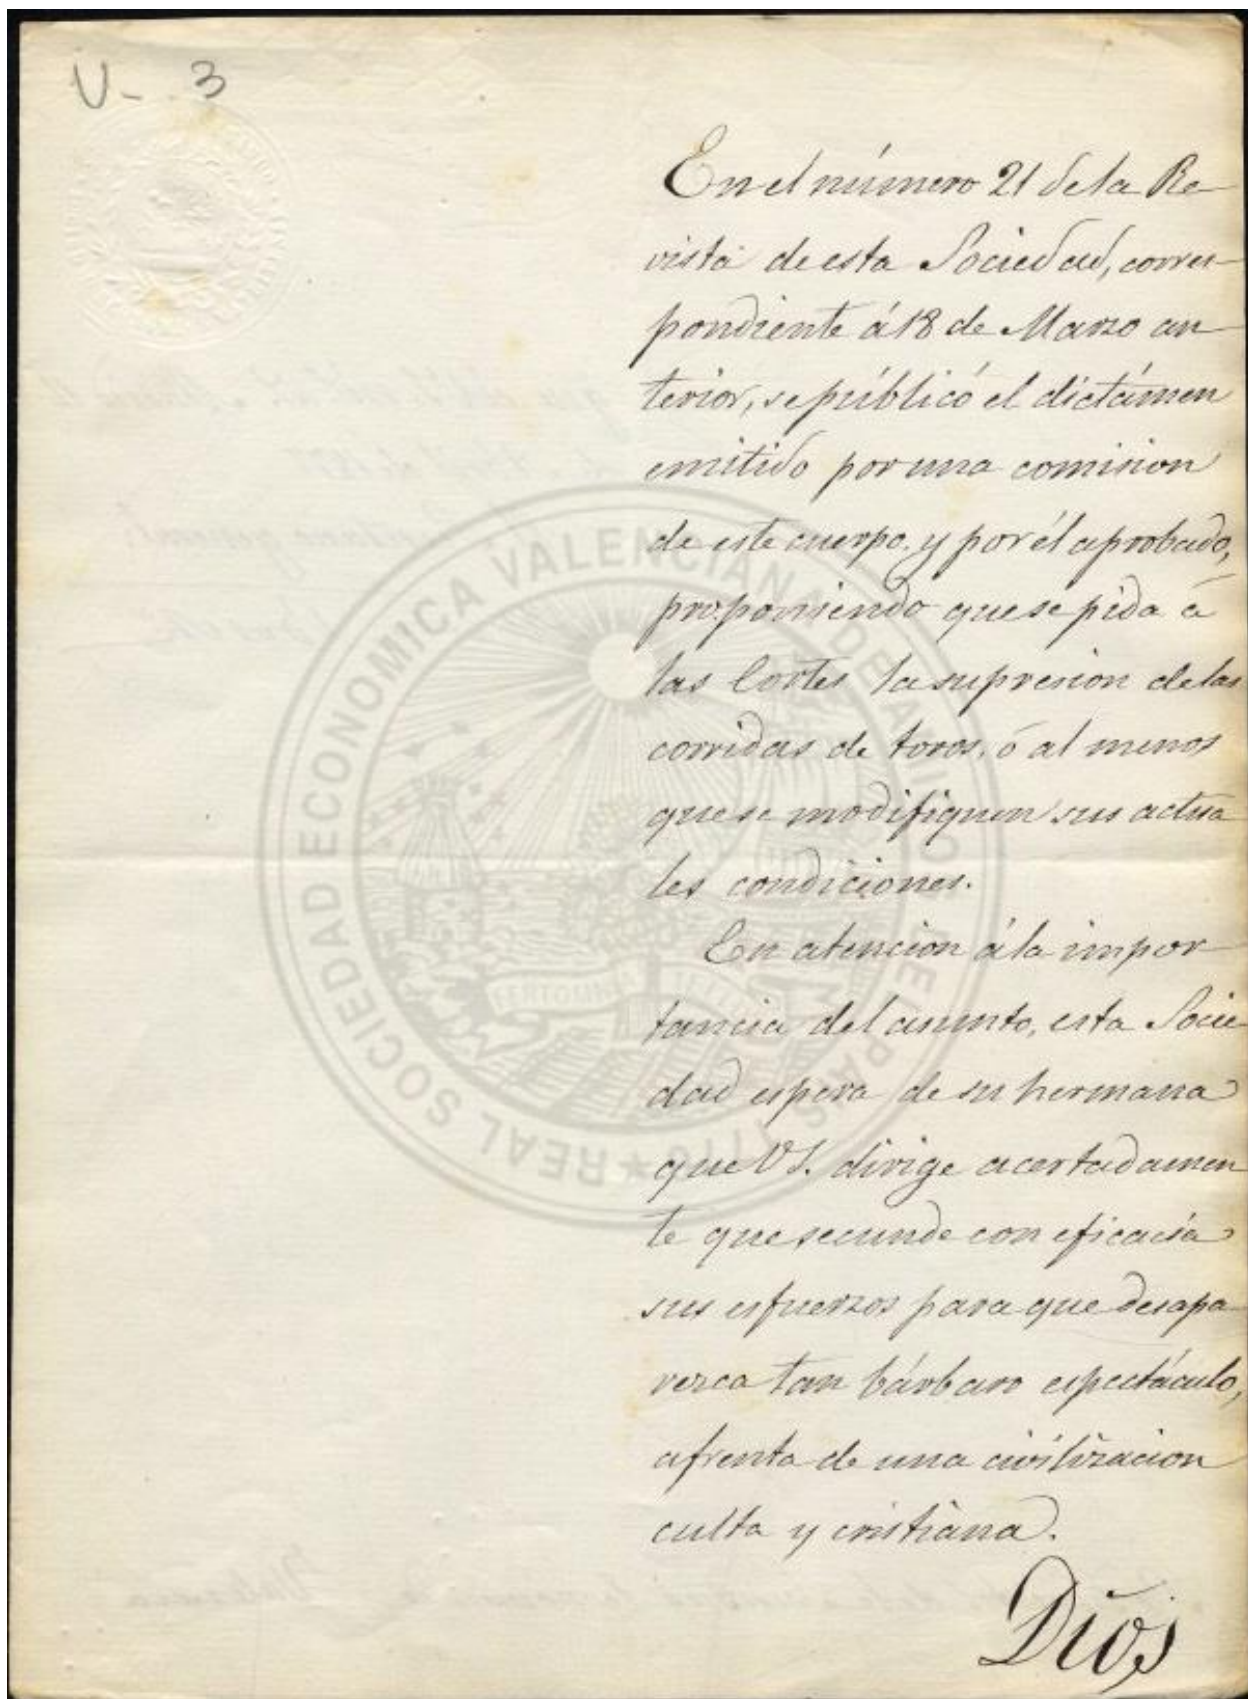 V- 3
En el número 21 de la Re-
vista de esta Sociedad, corres-
pondiente á 18 de Marzo an-
terior, se públicó el dictámen
emitido por una comision
de este cuerpo y por él aprobado,
proponiendo que se pida á
las Cortes la supresion de las
corridas de toros, ó al menos
que se modifiquen sus actua
les condiciones.
En atencion á la impor-
tancia del asunto, esta Socie
dad espera de su hermana
que VS. dirige acertadamen
te que secunde con eficacia
sus esfuerzos para que desapa-
rezca tan bárbaro espectáculo,
afrenta de una civilizacion
culta y cristiana.
Dios
REAL SOCIEDAD ECONOMICA VALENCIANA DE AMIGOS DEL PAIS 1776